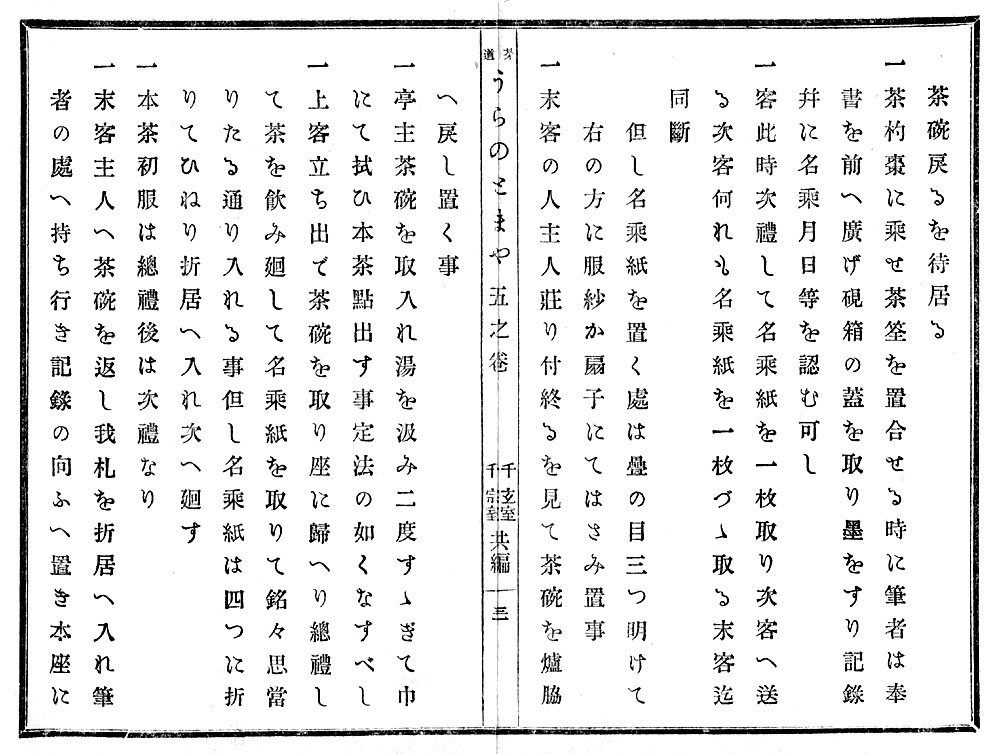 茶碗戻るを待居る
一茶杓棗に乘せ茶筌を置合せる時に筆者は奉
書を前へ廣げ硯箱の蓋を取り墨をすり記錄
幷に名乘月日等を認む可し
一客此時次禮して名乘紙を一枚取り次客へ送
る次客何れも名乘紙を一枚づゝ取る末客迄
同斷
但し名乘紙を置く處は疊の目三つ明けて
右の方に服紗か扇子にてはさみ置事
一末客の人主人莊り付終るを見て茶碗を爐脇
茶道 うらのとまや 五之卷 千玄室 千宗室 共編 三
へ戻し置く事
一亭主茶碗を取入れ湯を汲み二度すゝぎて巾
にて拭ひ本茶點出す事定法の如くなすべし
一上客立ち出で茶碗を取り座に歸へり總禮し
て茶を飮み廻して名乘紙を取りて銘々思當
りたる通り入れる事但し名乘紙は四つに折
りてひねり折居へ入れ次へ廻す
一本茶初服は總禮後は次禮なり
一末客主人へ茶碗を返し我札を折居へ入れ筆
者の處へ持ち行き記錄の向ふへ置き本座に